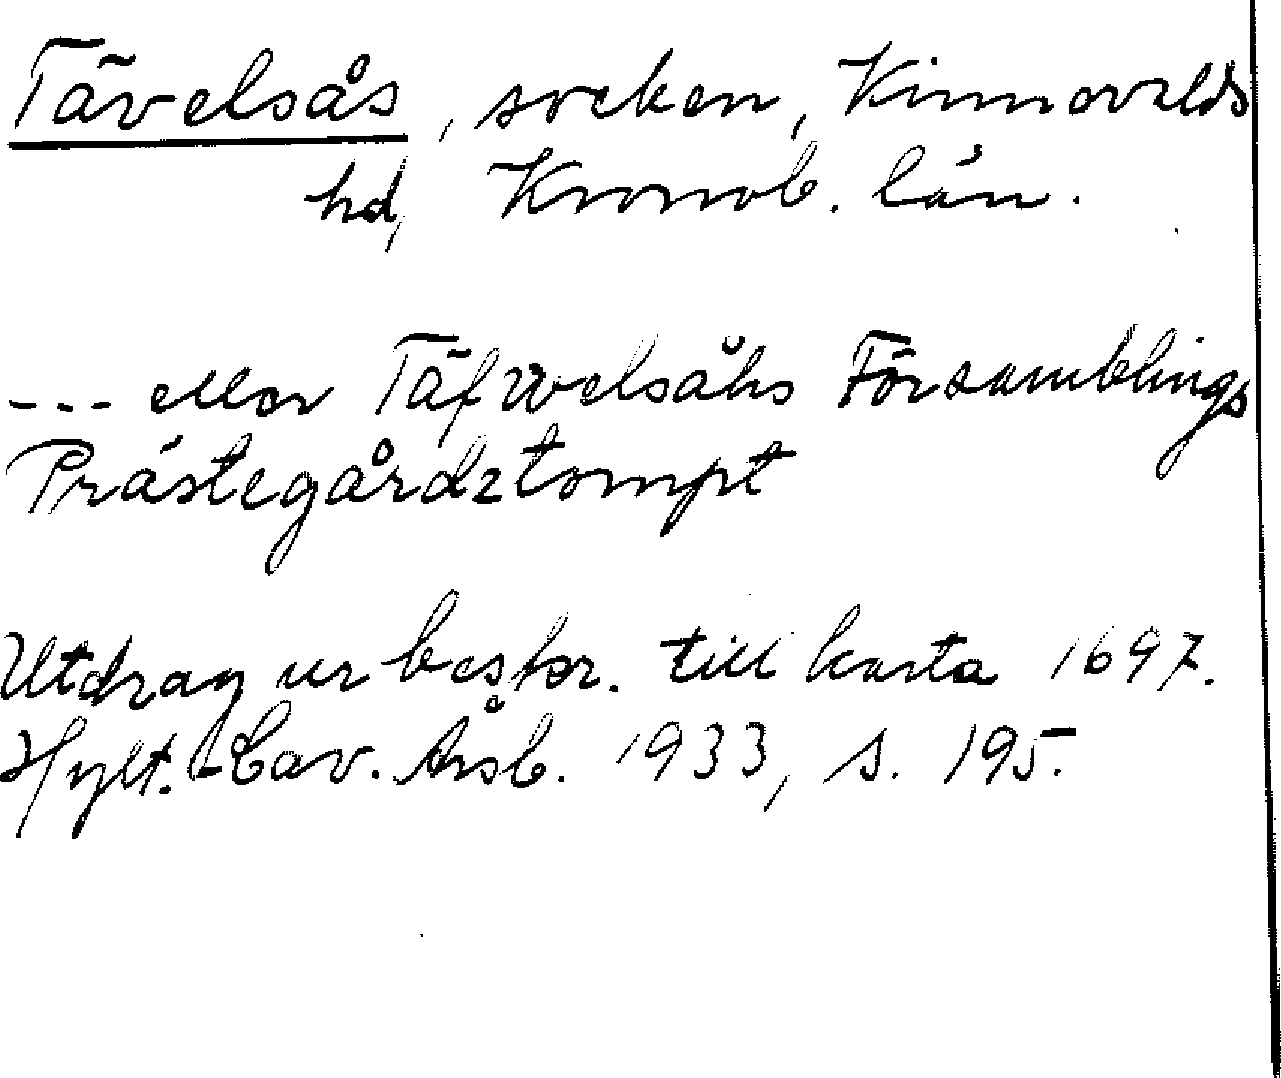 Tävelsås, socken, Kinnevalds
hd, Kronob. län.
--- eller Täfwelsåhs Församblings
Prästegårdztompt
Utdrag ur beskr. till karta 1697.
Hylt.-Cav. Årsb. 1933, s. 195.